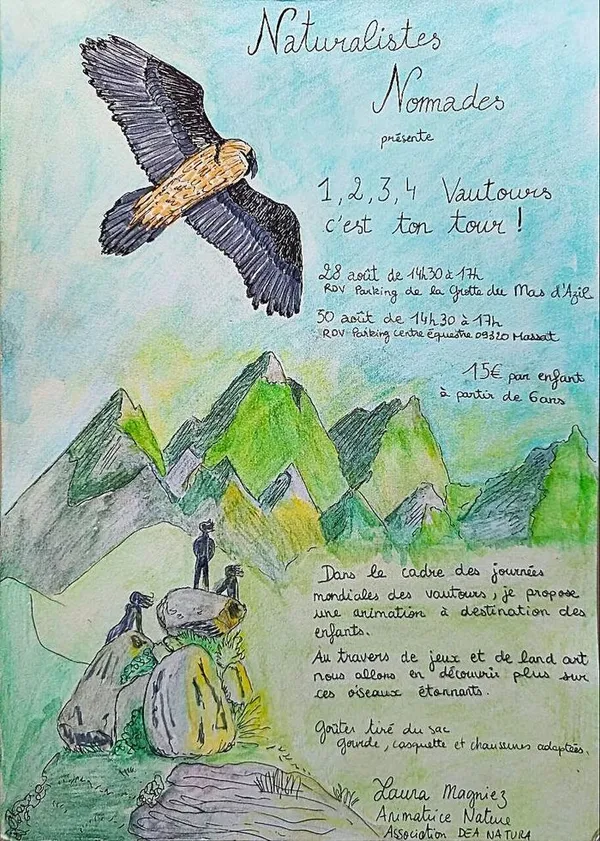 Naturalistes
Nomades
présente
1, 2, 3, 4 Vautours
c'est ton tour !
28 août de 14h30 à 17h
RDV Parking de la Grotte du Mas d'Azil
30 août de 14h30 à 17h
RDV Parking centre équestre 09320 Massat
15€ par enfant
à partir de 6 ans
Dans le cadre des journées
mondiales des vautours, je propose
une animation à destination des
enfants.
Au travers de jeux et de land art
nous allons en découvrir plus sur
ces oiseaux étonnants.
Goûter tiré du sac
Gourde, casquette et chaussures adaptées.
Laura Magniez
Animatrice Nature
Association DEA NATURA